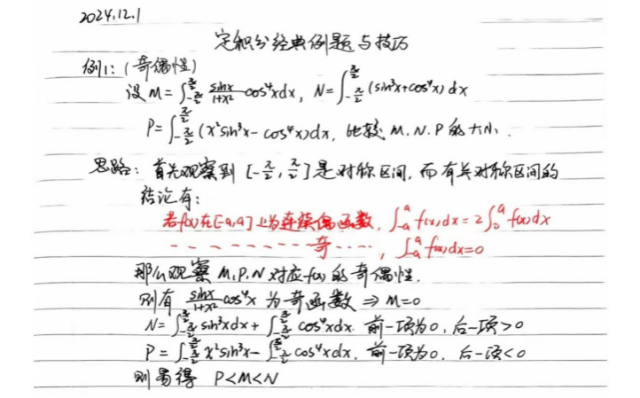 2024.12.1
定积分经典例题与技巧
例1:(奇偶性)
设 M=∫_{-π/2}^{π/2} sinx/(1+x²) cos⁴xdx, N=∫_{-π/2}^{π/2} (sin³x+cos⁴x)dx
P=∫_{-π/2}^{π/2} (x²sin³x-cos⁴x)dx, 比较 M.N.P 的大小.
思路: 首先观察到 [-π/2, π/2] 是对称区间, 而有关对称区间的
结论有:
若f(x)在[-a,a]上为连续偶函数, ∫_{-a}^{a} f(x)dx=2∫_{0}^{a} f(x)dx
- - - - - - - - - - 奇 - - - -, ∫_{-a}^{a} f(x)dx=0
那么观察 M.P.N 对应f(x)的奇偶性.
则有 sinx/(1+x²) cos⁴x 为奇函数 ⇒ M=0
N=∫_{-π/2}^{π/2} sin³xdx+∫_{-π/2}^{π/2} cos⁴xdx. 前一项为0, 后一项>0
P=∫_{-π/2}^{π/2} x²sin³x-∫_{-π/2}^{π/2} cos⁴xdx, 前一项为0. 后一项<0
则易得 P<M<N